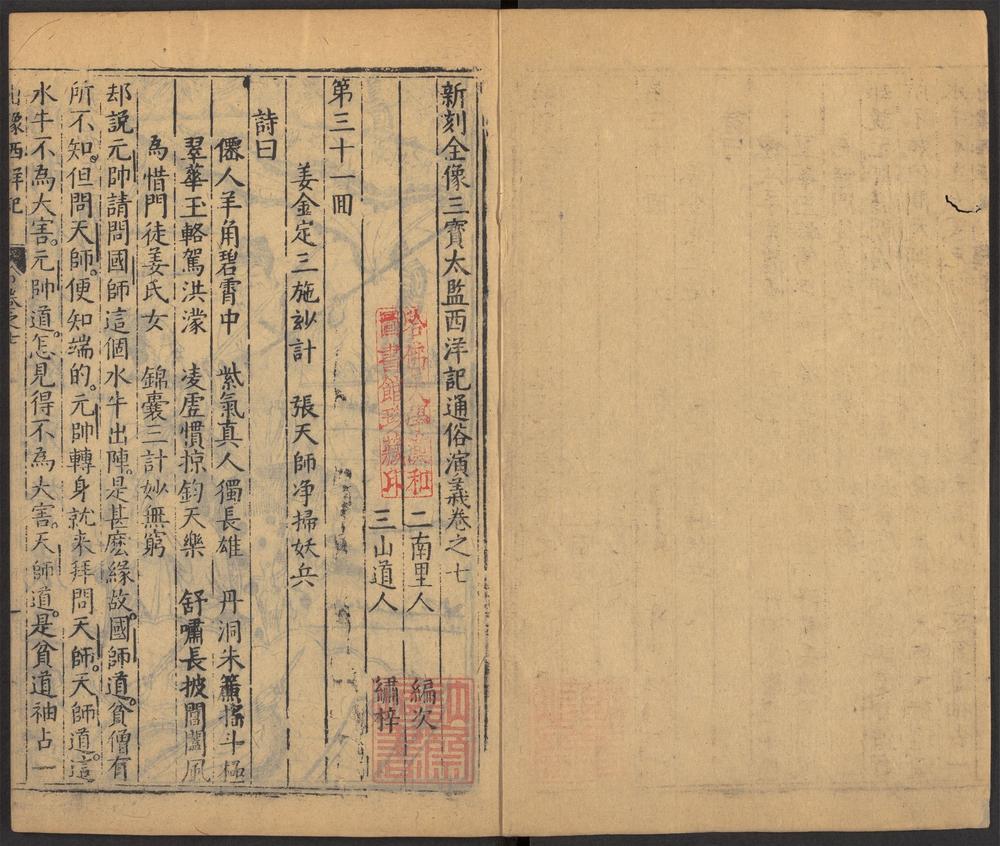 新刻全像三寶太監西洋記通俗演義卷之七
二南里人 編次
三山道人 繡梓
第三十一囘
姜金定三施妙計 張天師净掃妖兵
詩曰
僊人羊角碧霄中 紫氣真人獨長雄 丹洞朱簾搖斗極
翠華玉輅駕洪濛 凌虛慣掠鈞天樂 舒嘯長披閶闔風
為惜門徒姜氏女 錦囊三計妙無窮
却說元帥請問國師這個水牛出陣。是甚麽緣故。國師道。貧僧有
所不知。但問天師。便知端的。元帥轉身就来拜問天師。天師道。這
水牛不為大害。元帥道。怎見得不為大害。天師道。是貧道袖占一
出像西洋記 卷之七 一
哈佛大學漢和
圖書館珍藏印